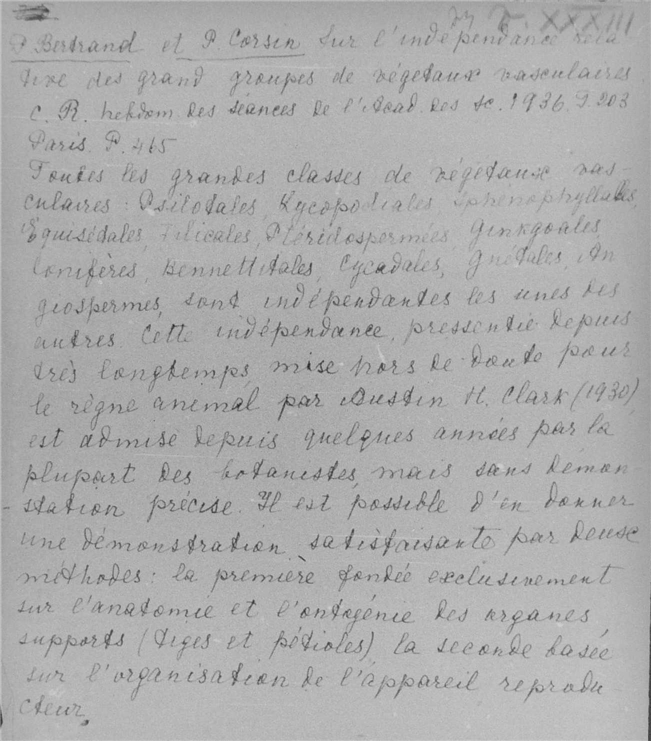 XXXIII
P Bertrand et P. Corsin Sur l'indépendance rela
tive des grand groupes de végetaux vasculaires
C. R. hebdom des séances de l'Acad. des sc. 1936. T. 203
Paris. P. 465
Toutes les grandes classes de végétaux vas-
culaires: Psilotales, Lycopodiales, Sphénophyllales,
Equisétales, Filicales, Ptéridospermées, Ginkgoales,
Conifères, Bennettitales, Cycadales, Gnétales, An
giospermes, sont indépendantes les unes des
autres. Cette indépendance, pressentie depuis
très longtemps, mise hors de doute pour
le règne animal par Austin H. Clark (1930),
est admise depuis quelques années par la
plupart des botanistes, mais sans démon-
station précise. Il est possible d'en donner
une démonstration satisfaisante par deux
méthodes: la première fondée exclusivement
sur l'anatomie et l'ontogénie des organes
supports (tiges et pétioles) la seconde basée
sur l'organisation de l'appareil reprodu
cteur.